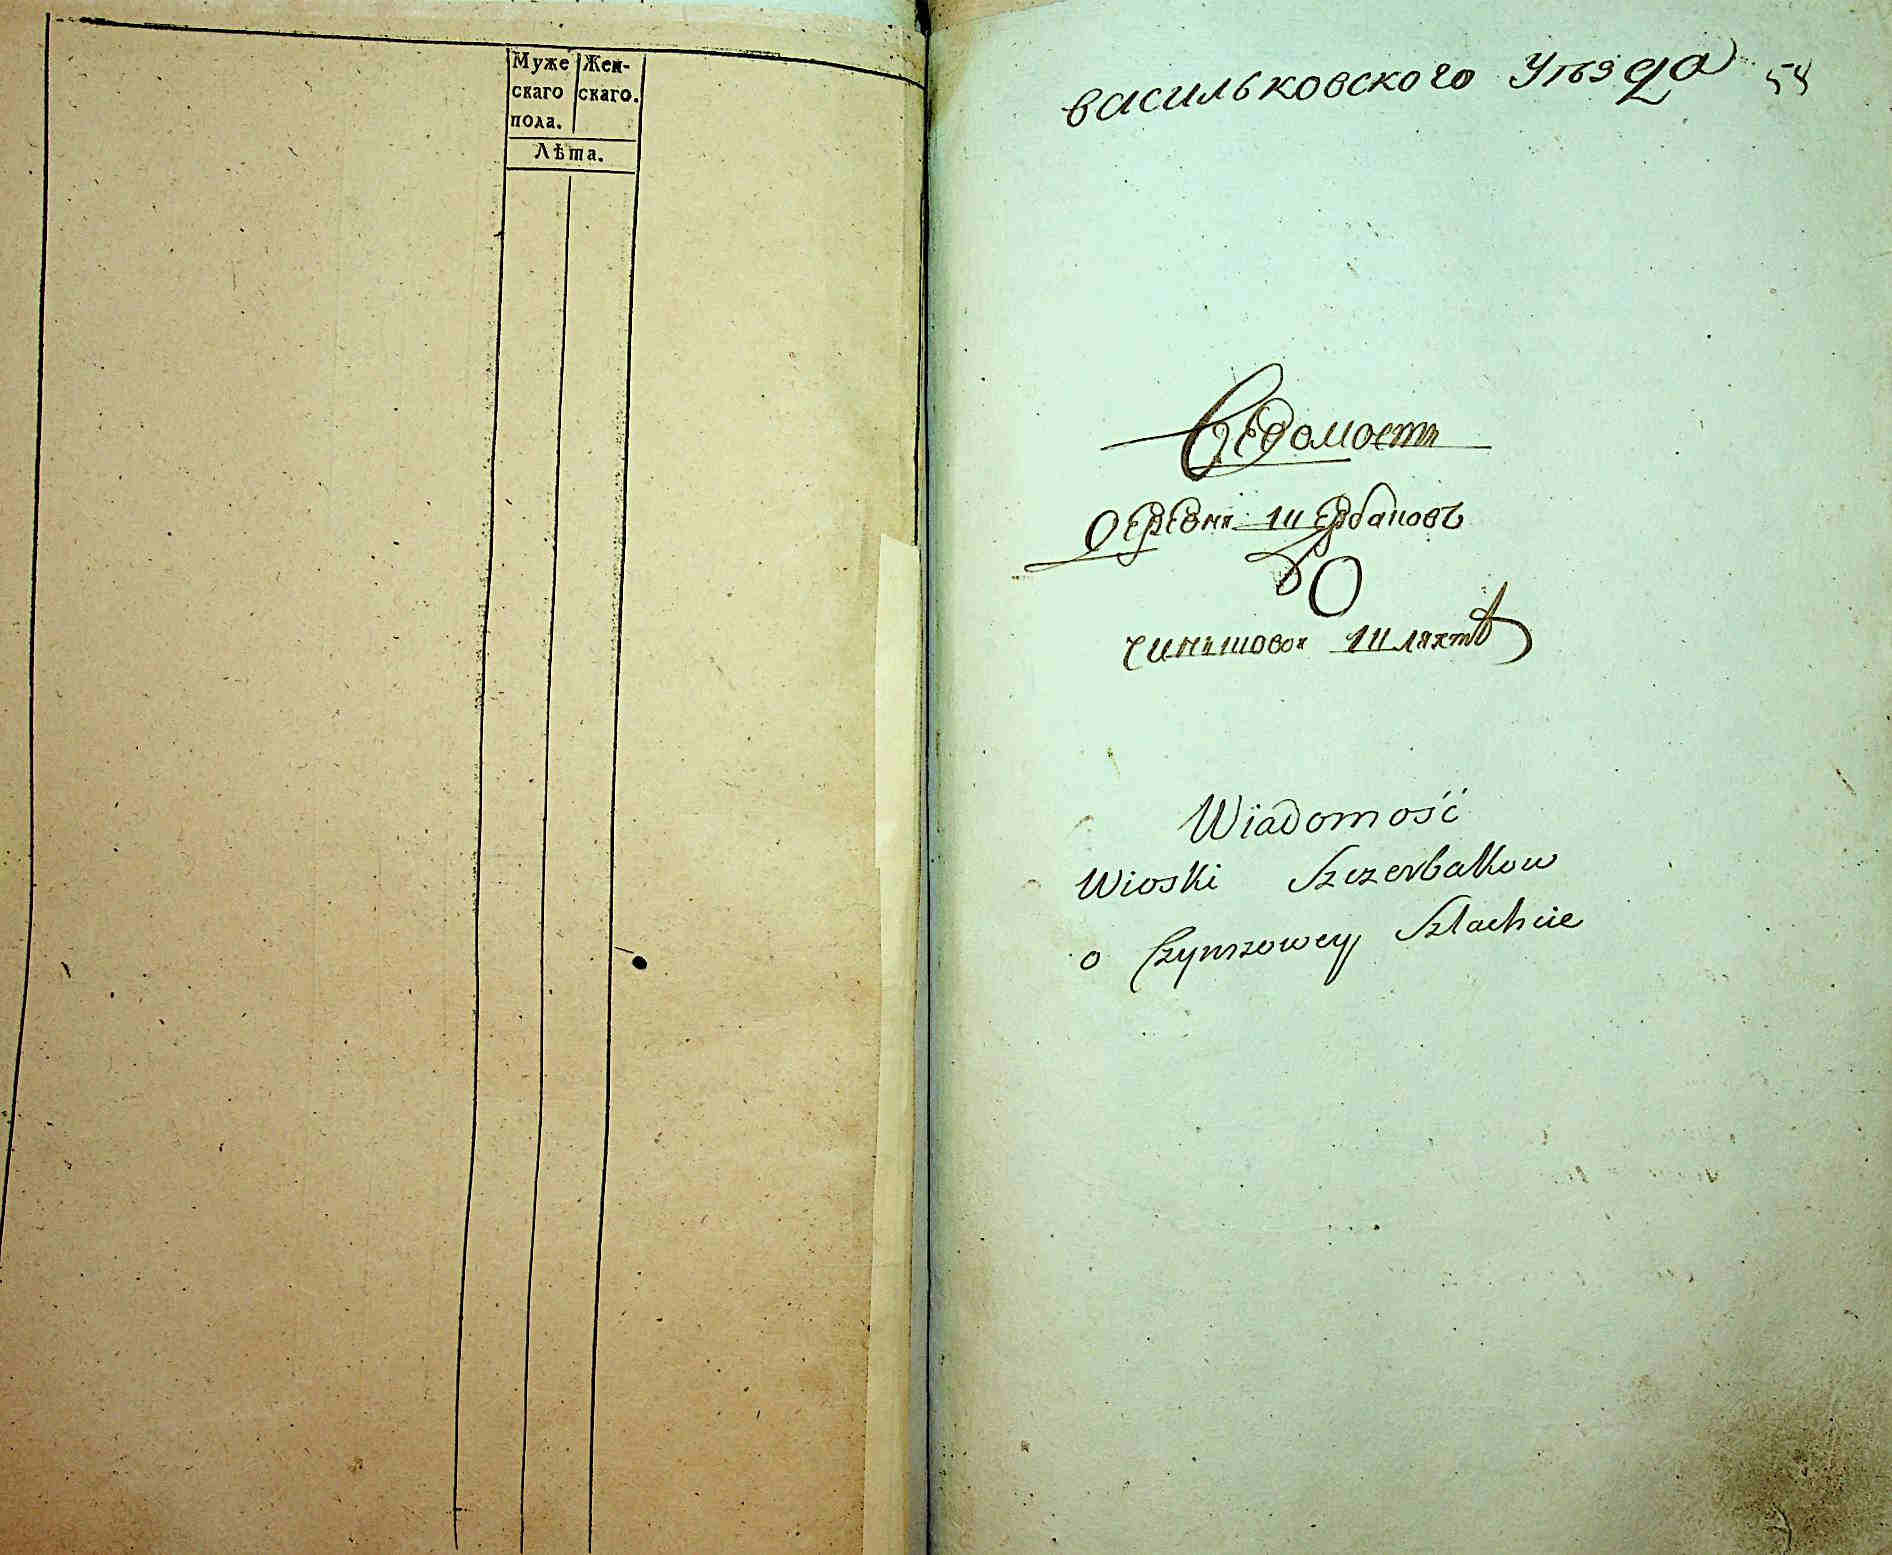 Муже
скаго
пола.
Жен-
скаго.
Лѣта.
васильковского Уѣзда 54
Ведомость
деревни Щербаковъ
О
чиншовой Шляхтѣ
Wiadomość
Wioski Szczerbakow
o Czynszowey Szlachcie